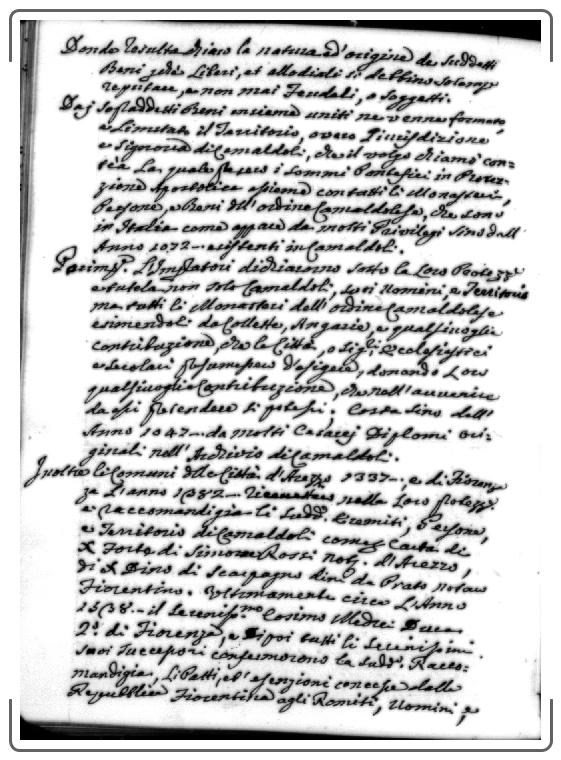 Donde risulta chiaro la natura, ed'origine de suddetti
Beni però Liberi, et allodiali si debbino sempre
reputare, e non mai Feudali, o soggetti.
Dai sopraddetti Beni insieme uniti ne venne formato,
e Limitato il Territorio, overo Giurisdizione
e Signoria di Camaldoli, che il volgo chiamò con=
tea La quale i sommi Pontefici in Protez=
zione Apostolica assieme con tutti li Monasteri,
Persone, e Beni dell'ordine Camaldolese, che sono
in Italia come appare da molti Privilegi sino dall'
Anno 1072 – esistenti in Camaldoli.
Parim.te L'Imperatori dichiararono sotto la Loro Protezz.e
e tutela non solo Camaldoli, suoi Uomini, e Territorio
ma tutti li Monasteri dell'ordine Camaldolese
esimendoli da Collette, Angarie, e qualsivoglia
contribuzione, che le Città, o Sig.ri Ecclesiastici
e secolari presumessero d'esigere, donando Loro
qualsivoglia Contribuzione, che nell'avvenire
da essi pretendere si potesse; Costa sino dall'
Anno 1047 – da molti Cesarei Diplomi ori=
ginali nell'Archivio di Camaldoli.
Inoltre li Comuni delle Città d'Arezzo 1337 –, e di Fioren=
za L'anno 1382 – riceverono nella Loro protezz.e
e raccomandigia li sudd.i Eremiti, Persone,
e Territorio di Camaldoli come Carta di
di Simone Rossi Not. d'Arezzo,
di Dino di da Prato notaro
Fiorentino. Ultimamente circa L'Anno
1538 – il Sereniss.mo Cosimo Medici Duca
2.o di Fiorenza, e Dipoi tutti li Serenissimi
suoi successori confermorono la sudd.a Racco=
mandigia, Li Patti, et'esenzioni concesse dalla
Repubblica Fiorentina agli Romiti, Uomini, e